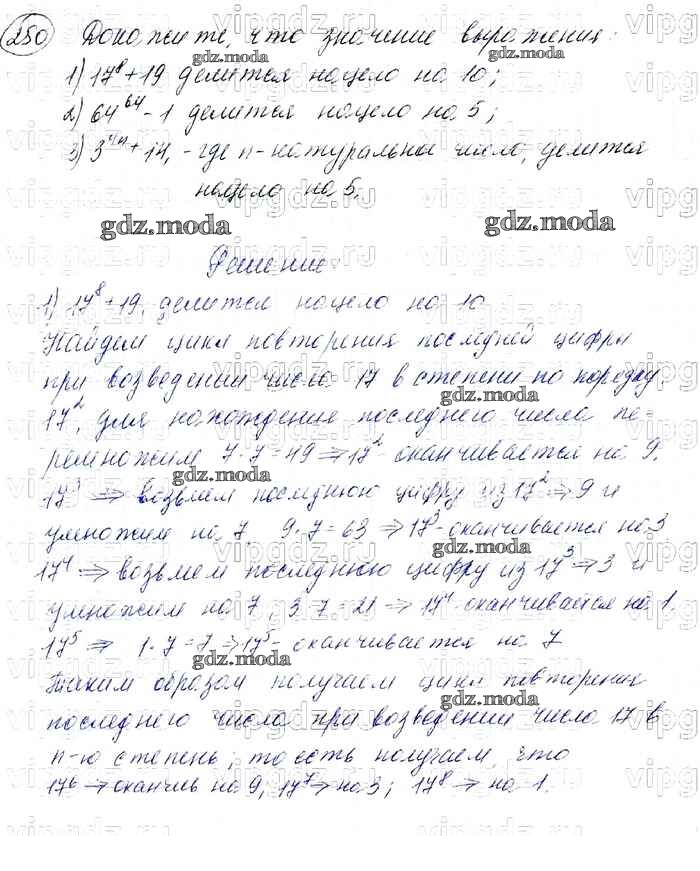 250 Докажите, что значение выражения:
1) 17⁸ + 19 делится нацело на 10;
2) 64⁶⁴ - 1 делится нацело на 5;
3) 3⁴ⁿ + 14, - где n - натуральны число, делится
нацело на 5.
gdz.moda
Решение
1) 17⁸ + 19, делится нацело на 10
Найдем цикл повторения последней цифры
при возведении числа 17 в степени по порядку
17², для нахождения последнего числа пе-
ремножим 7·7=49 ⇒ 17² - оканчивается на 9.
17³ ⇒ возьмем последнюю цифру из 17² ⇒ 9 и
умножим на 7 9·7=63 ⇒ 17³ - оканчивается на 3
17⁴ ⇒ возьмем последнюю цифру из 17³ ⇒ 3 и
умножим на 7, 3·7=21 ⇒ 17⁴ - оканчивается на 1.
17⁵ ⇒ 1·7=7 ⇒ 17⁵ - оканчивается на 7
Таким образом получаем цикл повторения
последнего числа при возведении числа 17 в
n-ю степень, то есть получаем, что
17⁶ → оканчив на 9; 17⁷ → на 3; 17⁸ → на 1.